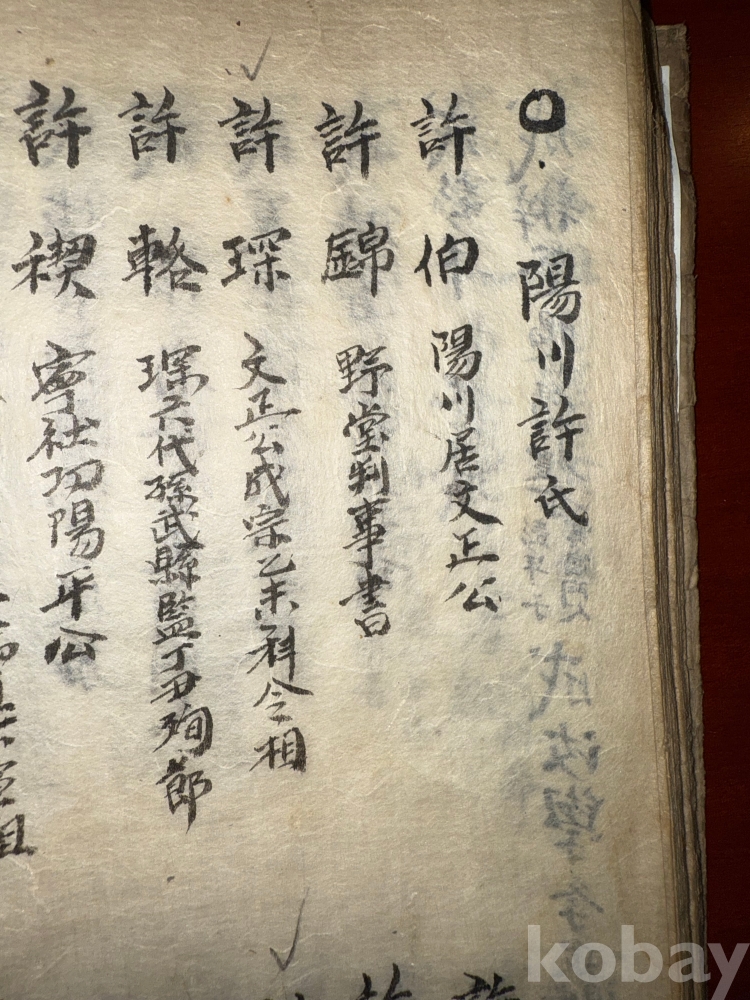 ○ 陽川許氏
許伯 陽川居文正公
許錦 野堂判事書
許琛 文正公成宗乙未科今相
許輅 琛六代孫武縣監丁丑殉節
許禊 寧社功陽平公
許
許
kobay